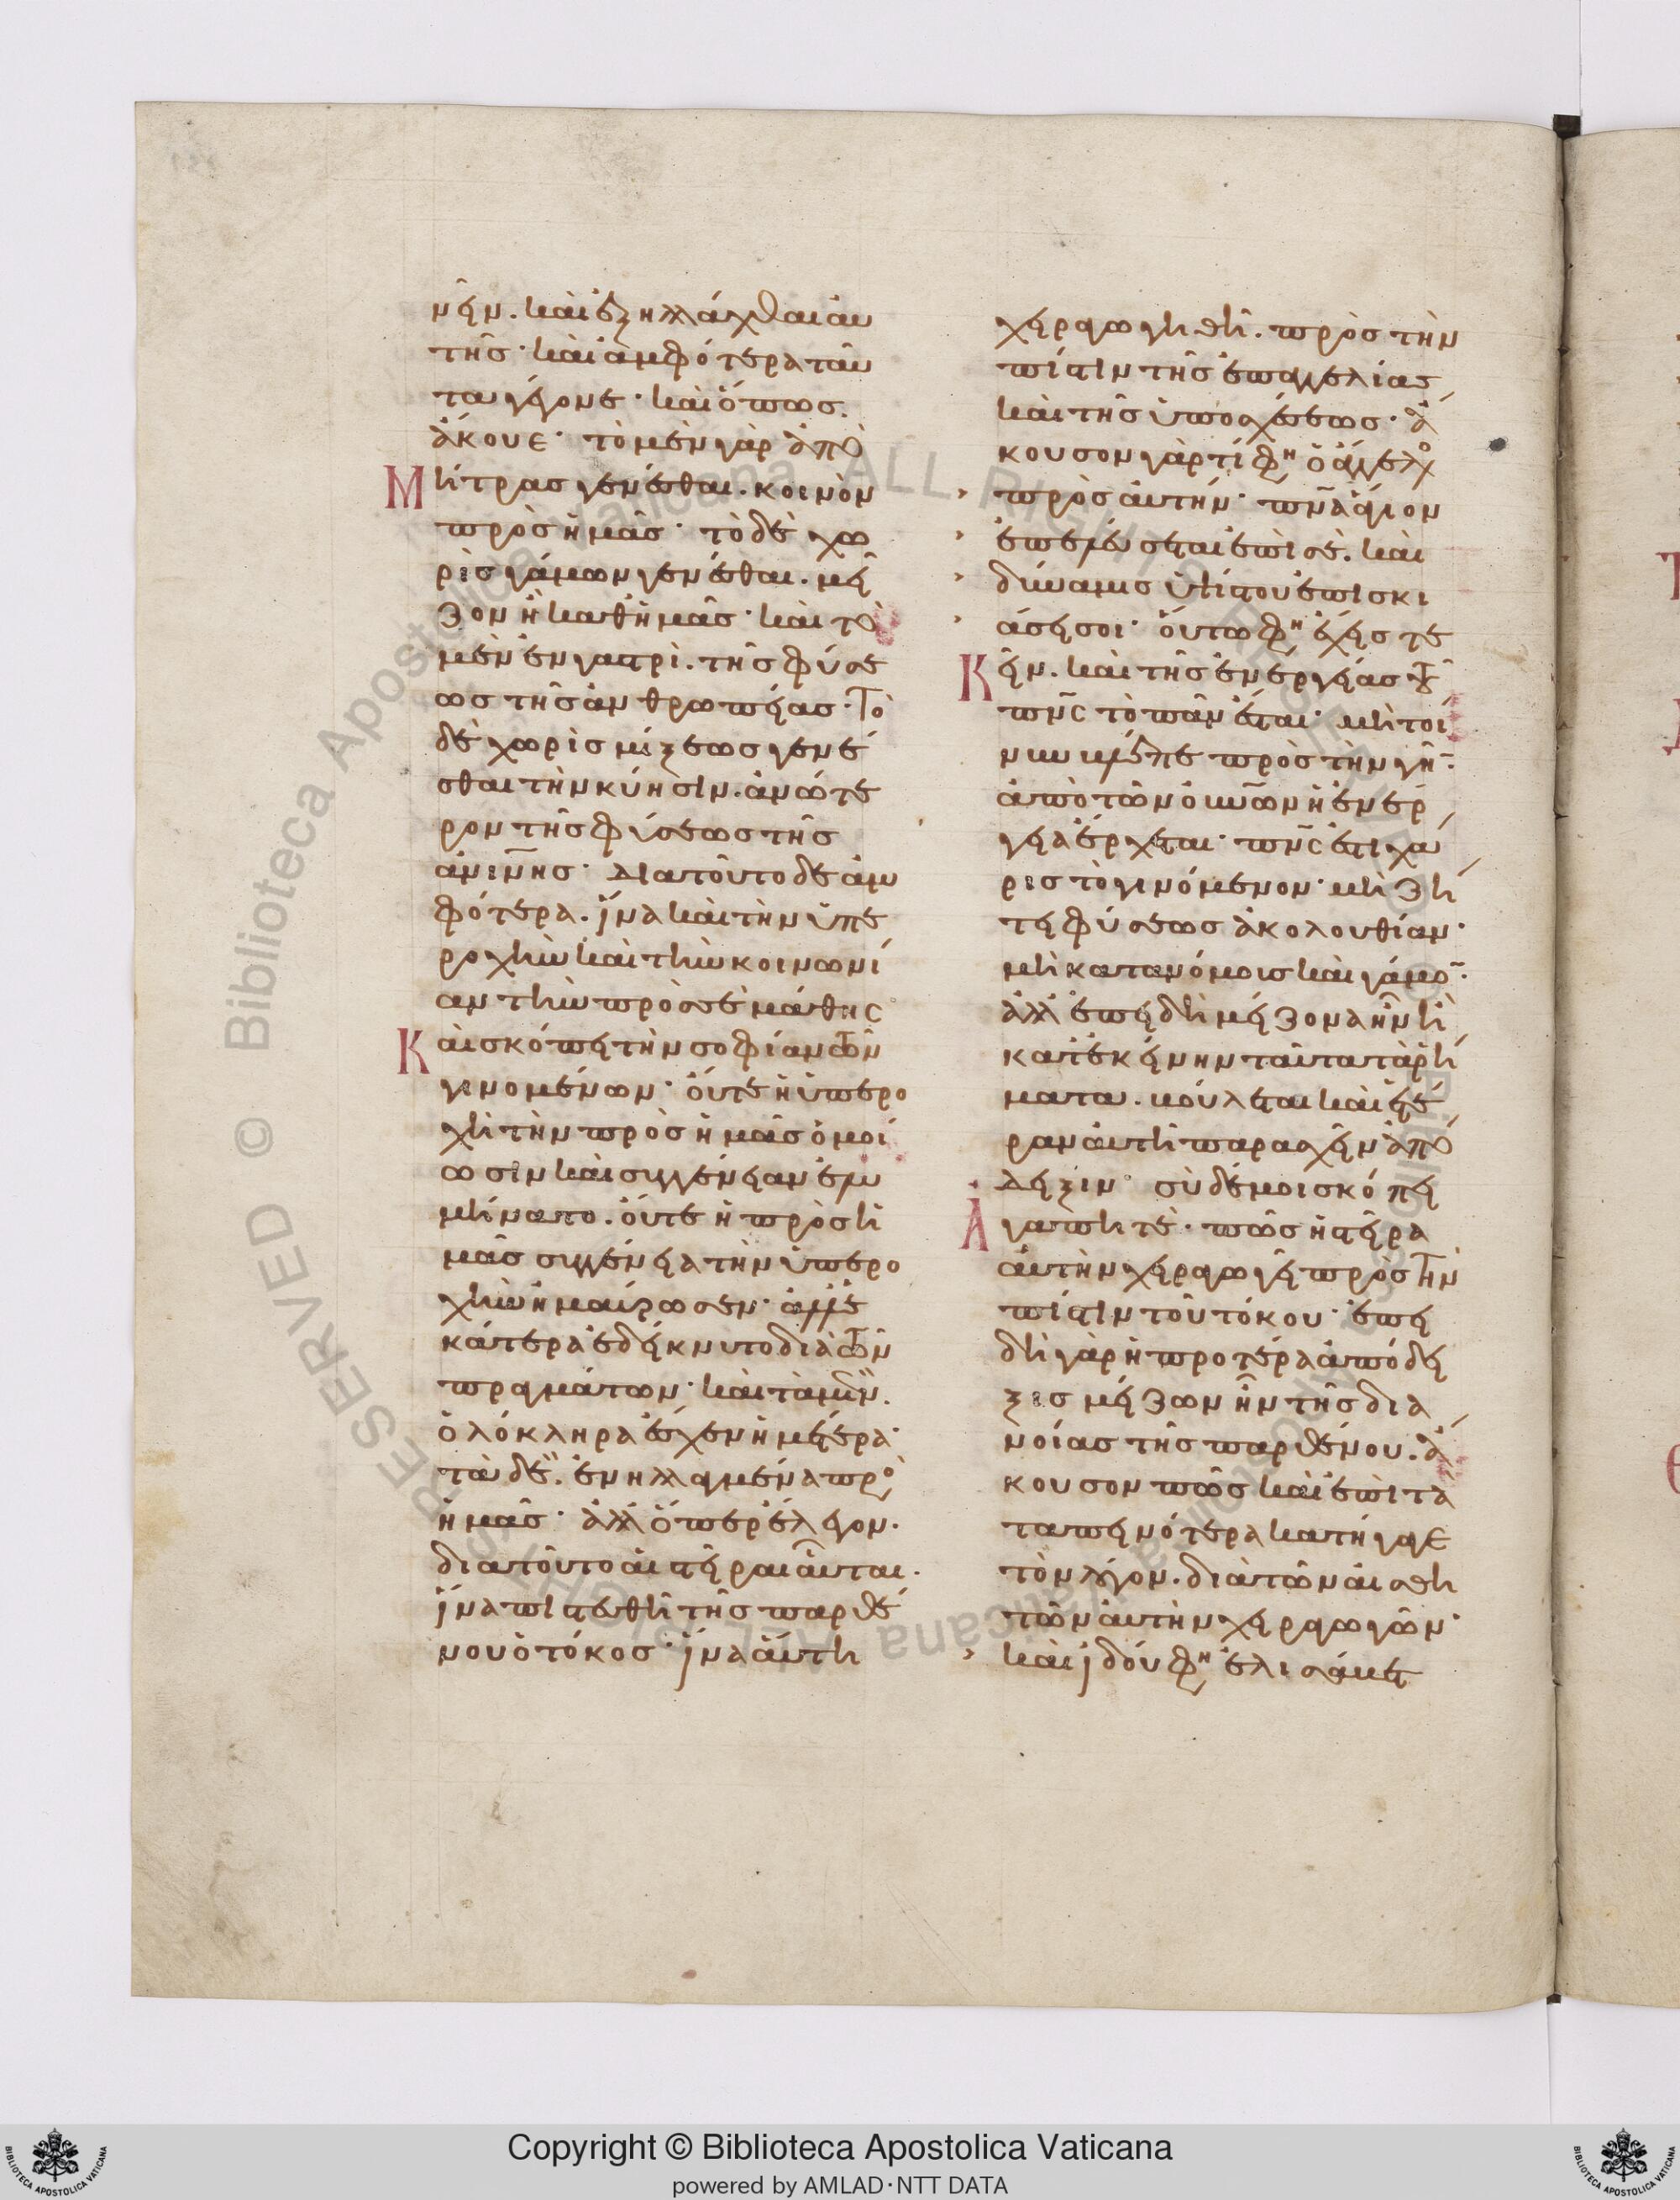 νεῖν. καὶ ἐξηλλάχθαι αὐ
τῆς· καὶ ἀμφότερα ταῦ
τα γέγονε· καὶ ὅπως.
ἄκουε· τὸ μὲν γὰρ ἀπὸ
Μήτρας γενέσθαι. κοινὸν
πρὸς ἡμᾶς· τὸ δὲ χω
ρὶς γάμων γενέσθαι. μεῖ
ζον ἢ καθ ἡμᾶς· καὶ τὸ
μὲν ἐν γαστρὶ. τῆς φύσε
ως τῆς ἀνθρωπείας· Τὸ
δὲ χωρὶς μίξεως γενέ
σθαι τὴν κύησιν. ἀνώτε
ρον τῆς φύσεως τῆς
ἀνίνης· Διατοῦτο δε ἀμ
φότερα. ἵνα καὶ τὴν ὑπε
ροχὴν καὶ τὴν κοινωνί
αν τὴν πρὸς σὲ μάθης
Καὶ σκόπει τὴν σοφίαν τῶν
γινομένων· οὔτε ἡ ὑπερο
χὴ τὴν πρὸς ἡμᾶς ὁμοί
ωσιν καὶ συγγένειαν ἐλυ
μήνατο. οὔτε ἡ πρὸς ἡ
μᾶς συγγένεια τὴν ὑπερο
χὴν ἠμαύρωσεν· ἀλλ ἑ
κάτερα ἐδείκνυτο διὰ τῶν
πραγμάτων· καὶ τὰ μὲν.
ὁλόκληρα εἶχεν ἡμέτερα·
τὰ δὲ. ἐνηλλαγμένα πρὸ
ἡμᾶς· ἀλλ ὅπερ ἔλεγον.
διατοῦτο αἱ στεῖραι αὗται.
ἵνα πιστευθῆ τῆς παρθέ
νου ὁ τόκος· ἵνα αὕτη
χειραγωγηθῆ. πρὸς τὴν
πίστιν τῆς ἐπαγγελίας
καὶ τῆς ὑποσχέσεως· ἄ
κουσον γὰρ τί φη ὁ ἄγγελο
πρὸς αὐτήν· πνα ἅγιον
ἐπελεύσεται ἐπὶ σέ. καὶ
δύναμις ὑψίστου ἐπισκι
άσει σοι· οὕτω φη ἕξεις τε
Κεῖν. καὶ τῆς ἐνεργείας τοῦ
πνς τὸ πᾶν ἔσται· μὴ τοί
νυν βλέπε πρὸς τὴν γῆ·
ἀπὸ τῶν οὐνων ἡ ἐνέρ
γεια ἔρχεται· πνς ἐστι χά
ρις τὸ γινόμενον· μὴ ζή
τει φύσεως ἀκολουθίαν·
μὴ καταν όμοις καὶ γάμο·
ἀλλ ἐπειδὴ μείζονα ἦν ἢ
κατ ἐκείνην ταῦτα τὰ ῥή
ματα. βούλεται καὶ ἑτέ
ραν αὐτῆ παρασχεῖν ἀπό
δειξιν· σὺ δέ μοι σκόπει
Ἀγαπητὲ· πῶς ἡ στεῖρα
αὐτὴν χειραγωγεῖ πρὸς τὴν
πίστιν τοῦ τόκου· ἐπει
δὴ γὰρ ἡ προτέρα ἀπόδει
ξις μείζων ἦν τῆς δια
νοίας τῆς παρθένου. ἄ
κουσον πῶς καὶ ἐπὶ τὰ
ταπεινότερα κατήγαγε
τὸν λόγον. διὰ τῶν αἰσθη
τῶν αὐτὴν χειραγωγῶν·
καὶ ἰδού φη ἐλισάβετ
Copyright © Biblioteca Apostolica Vaticana
powered by AMLAD·NTT DATA